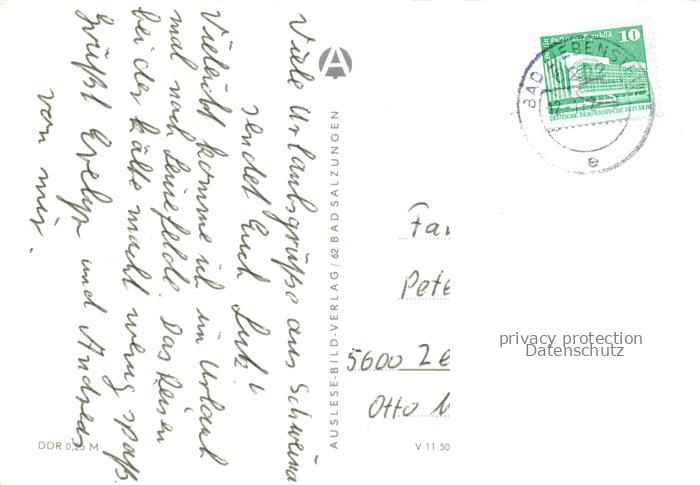 Viele Urlaubsgrüße aus Schweina
sendet Euch Lutz
Vieleicht komme ich im Urlaub
mal nach Leinefelde. Das Reisen
bei der Kälte macht wenig Spaß.
Grüßt Evelyn und Andreas
von mir.
AUSLESE-BILD-VERLAG/62 BAD SALZUNGEN
DDR 0,25 M
V 11 50
10
DEUTSCHE DEMOKRATISCHE REPUBLIK
BAD LIEBENSTEIN
e
Fa
Pete
5600 Le
Otto
privacy protection
Datenschutz